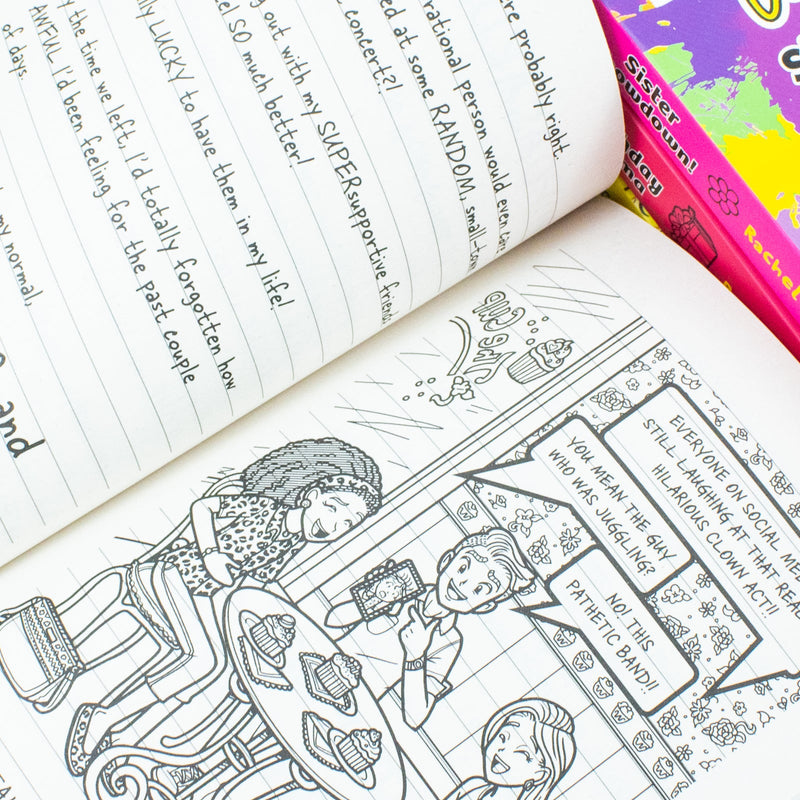 re probably right.
rational person would even
ed at some RANDOM, small-tow
concert?!
g out with my SUPERsupportive friend
SO much better!
LUCKY to have them in my life!
y the time we left, I'd totally forgotten how
AWFUL I'd been feeling for the past couple
of days.
my normal,
and
EVERYONE ON SOCIAL ME
STILL LAUGHING AT THAT REA
HILARIOUS CLOWN ACT!!
YOU MEAN THE GUY
WHO WAS JUGGLING?
NO! THIS
PATHETIC BAND!!
Sister
owdown!
Rachel
day